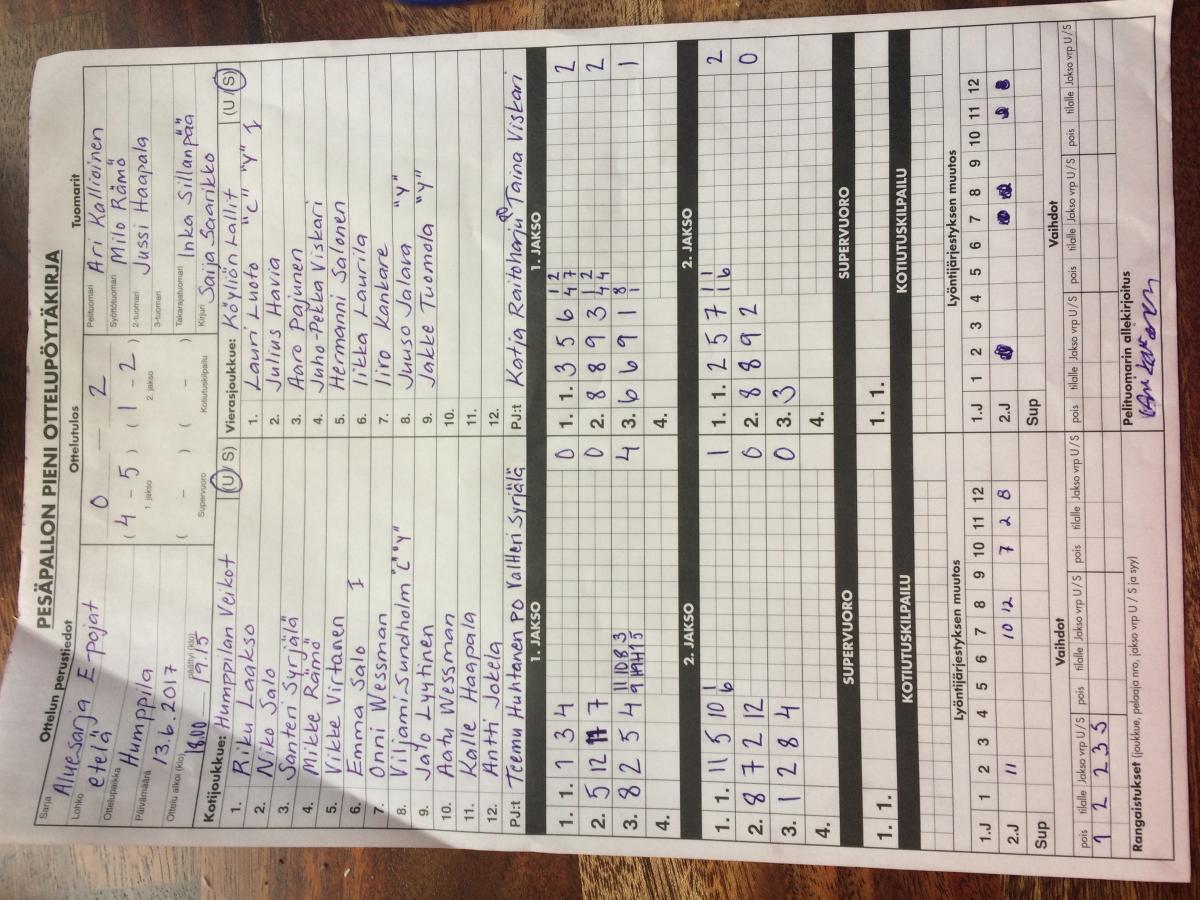 PESÄPALLON PIENI OTTELUPÖYTÄKIRJA
Ottelun perustiedot
Sarja
Aluesarja E-pojat
Lohko
etelä
Ottelupaikka
Humppila
Päivämäärä
13.6.2017
Ottelu alkoi (klo) 18.00 päättyi (klo) 19.15
Ottelutulos
0 – 2
( 4 – 5 ) ( 1 – 2 )
1. jakso 2. jakso
( – ) ( – )
Supervuoro Kotiutuskilpailu
Tuomarit
Pelituomari Ari Kallioinen
Syöttötuomari Milo Rämö
2-tuomari Jussi Haapala
3-tuomari
Takarajatuomari Inka Sillanpää
Kirjuri Saija Saarikko
Kotijoukkue: Humppilan Veikot (U/S)
1. Riku Laakso
2. Niko Salo
3. Santeri Syrjälä
4. Mikke Rämö
5. Vikke Virtanen
6. Emma Salo I
7. Onni Wessman
8. Viljami Sundholm "C" "Y"
9. Jalo Lyytinen
10. Aatu Wessman
11. Kalle Haapala
12. Antti Jokela
PJ:t Teemu Huhtanen PO Valtteri Syrjälä
Vierasjoukkue: Köyliön Lallit (U/S)
1. Lauri Luoto "C" "Y" I
2. Julius Havia
3. Aaro Pajunen
4. Juho-Pekka Viskari
5. Hermanni Salonen
6. Iikka Laurila
7. Iiro Kankare
8. Juuso Jalava "Y"
9. Jakke Tuomola "Y"
10.
11.
12.
PJ:t Katja Raitoharju Taina Viskari
1. JAKSO
1. 1. 1 3 4 0
2. 5 12 7 0
3. 8 2 5 4 4
4.
1. JAKSO
1. 1. 3 5 6 2
2. 8 8 9 3 2
3. 6 6 9 1 1
4.
2. JAKSO
1. 1. 11 5 10 1
2. 8 7 2 12 0
3. 1 2 8 4 0
4.
2. JAKSO
1. 1. 2 5 7 2
2. 8 8 9 2 0
3. 3
4.
SUPERVUORO
1. 1.
SUPERVUORO
1. 1.
KOTIUTUSKILPAILU
KOTIUTUSKILPAILU
Lyöntijärjestyksen muutos
1.J 1 2 3 4 5 6 7 8 9 10 11 12
2.J 11 10 12 7 2 8
Sup
Lyöntijärjestyksen muutos
1.J 1 2 3 4 5 6 7 8 9 10 11 12
2.J
Sup
Vaihdot
pois tilalle Jakso vrp U/S pois tilalle Jakso vrp U/S pois tilalle Jakso vrp U/S
Vaihdot
pois tilalle Jakso vrp U/S pois tilalle Jakso vrp U/S pois tilalle Jakso vrp U/S
Rangaistukset (joukkue, pelaaja nro, jakso vrp U / S ja syy)
Pelituomarin allekirjoitus